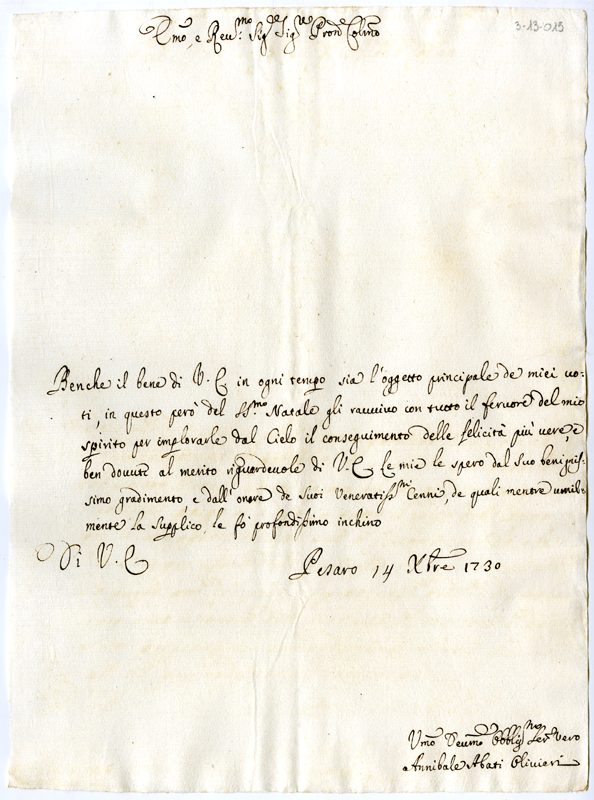 3-13-015
Emo, e Reu:mo Sigre Sigre Prone Colmo
Benche il bene di V. E in ogni tempo sia l'oggetto principale de miei uo:
ti, in questo però del SSmo Natale gli rauuiuo con tutto il feruore del mio
spirito per implorarle dal Cielo il conseguimento delle felicità più uere, e
ben douute al merito riguardeuole di V. E Le mie le spero dal Suo benignis:
simo gradimento, e dall'onore de Suoi Veneratissmi Cenni, de quali mentre umil:
mente la Supplico, le fò profondissimo inchino
Di V. E
Pesaro 14 Xbre 1730
Vmo Deumo Obblismo Ser Vero
Annibale Abati Olivieri